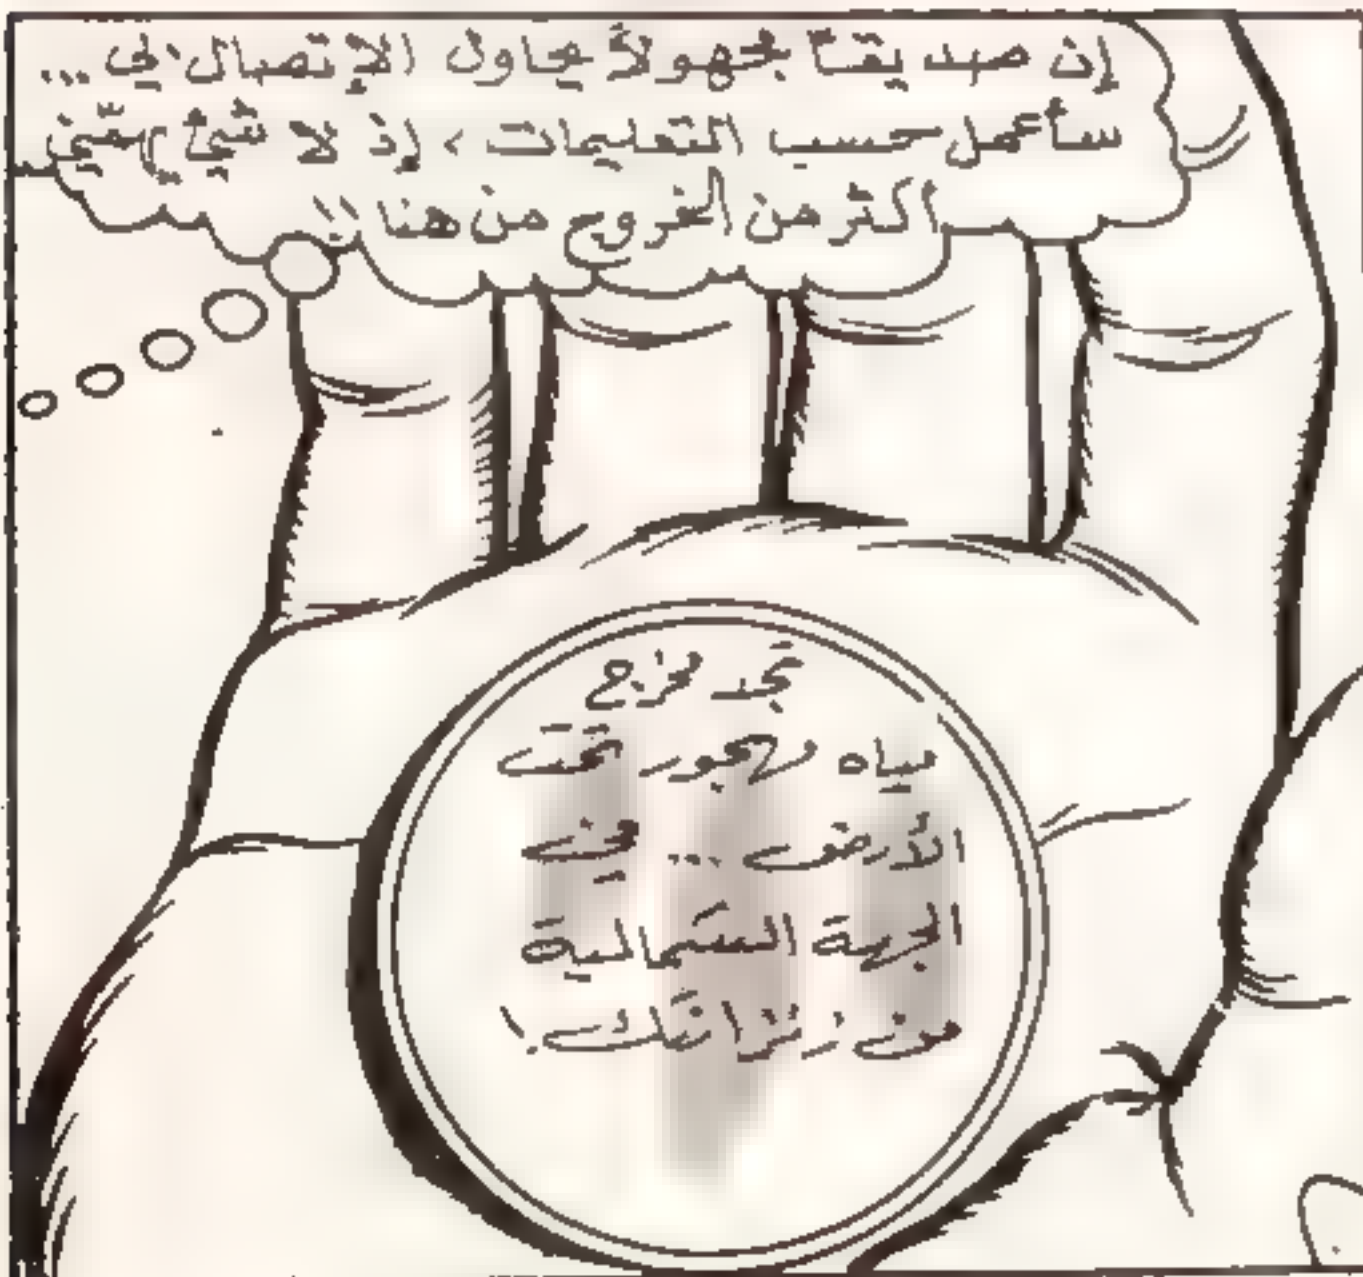 إن صديقاً مجهولاً يحاول الإتصال بي ...
سأعمل حسب التعليمات ، إذ لا شيئ يهمّني
أكثر من الخروج من هنا !!
تجد مخرج
مياه مهجور تحت
الأرض ... في
الجهة الشمالية
من زنزانتك !